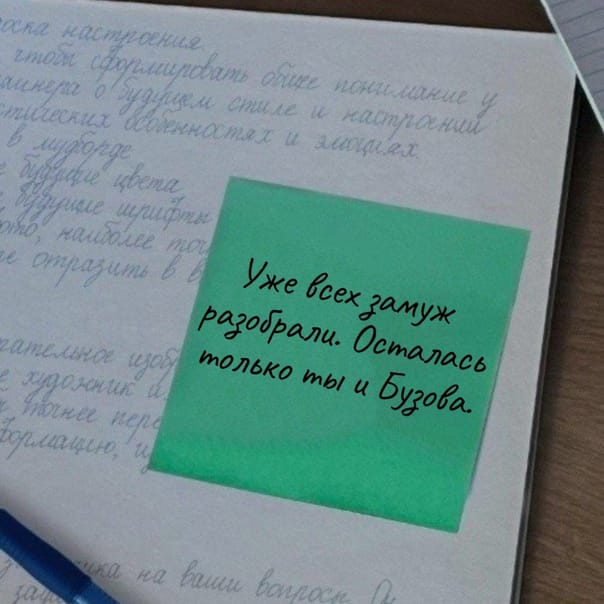 доска настроения
чтобы сформировать общее понимание у
дизайнера о будущем стиле и настроении
стилических особенностях и эмоциях.
в мудборде
будущие цвета
будущие шрифты
наиболее
отразить в
Уже всех замуж
разобрали. Осталась
только ты и Бузова.
художник и
точнее
на ваши вопросы. Он